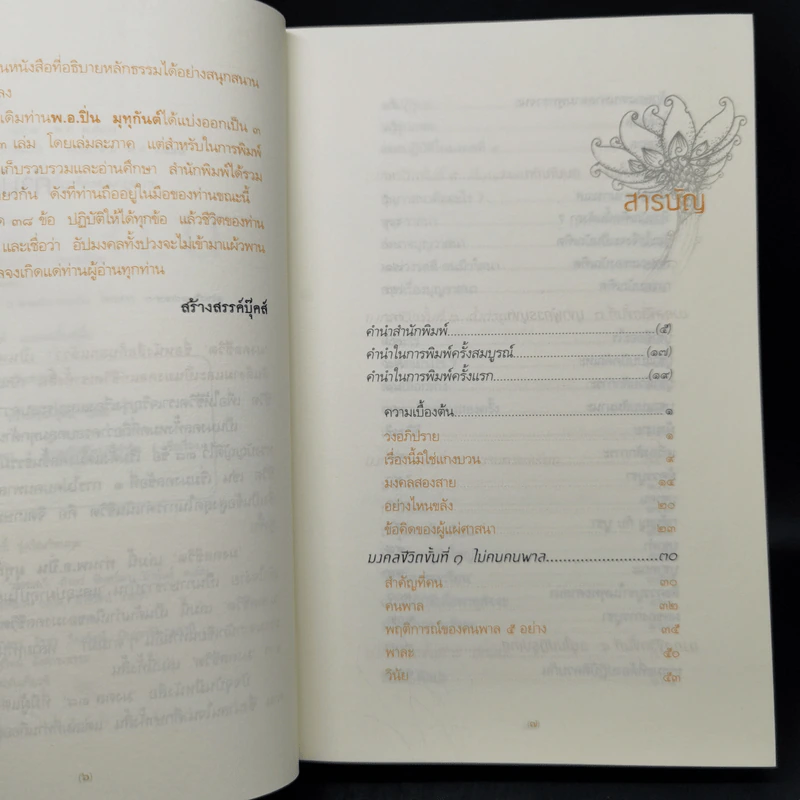 นหนังสือที่อธิบายหลักธรรมได้อย่างสนุกสนาน
ลง
เดิมท่านพ.อ.ปิ่น มุทุกันต์ได้แบ่งออกเป็น ๓
๓ เล่ม โดยเล่มละภาค แต่สำหรับในการพิมพ์
เก็บรวบรวมและอ่านศึกษา สำนักพิมพ์ได้รวม
ยวกัน ดังที่ท่านถืออยู่ในมือของท่านขณะนี้
ด ๓๘ ข้อ ปฏิบัติให้ได้ทุกข้อ แล้วชีวิตของท่าน
และเชื่อว่า อัปมงคลทั้งปวงจะไม่เข้ามาแผ้วพาน
ลจงเกิดแด่ท่านผู้อ่านทุกท่าน
สร้างสรรค์บุ๊คส์
(๖)
สารบัญ
คำนำสำนักพิมพ์...(๕)
คำนำในการพิมพ์ครั้งสมบูรณ์...(๑๗)
คำนำในการพิมพ์ครั้งแรก...(๑๙)
ความเบื้องต้น...๑
วงอภิปราย ๑
เรื่องนี้มิใช่แกงบวน ๙
มงคลสองสาย ๑๔
อย่างไหนขลัง ๒๐
ข้อคิดของผู้แผ่ศาสนา ๒๓
มงคลชีวิตขั้นที่ ๑ ไม่คบคนพาล...๓๐
สำคัญที่ตน ๓๐
คนพาล ๓๒
พฤติการณ์ของคนพาล ๕ อย่าง ๓๕
พาละ ๕๐
วินัย ๕๓
(๗)